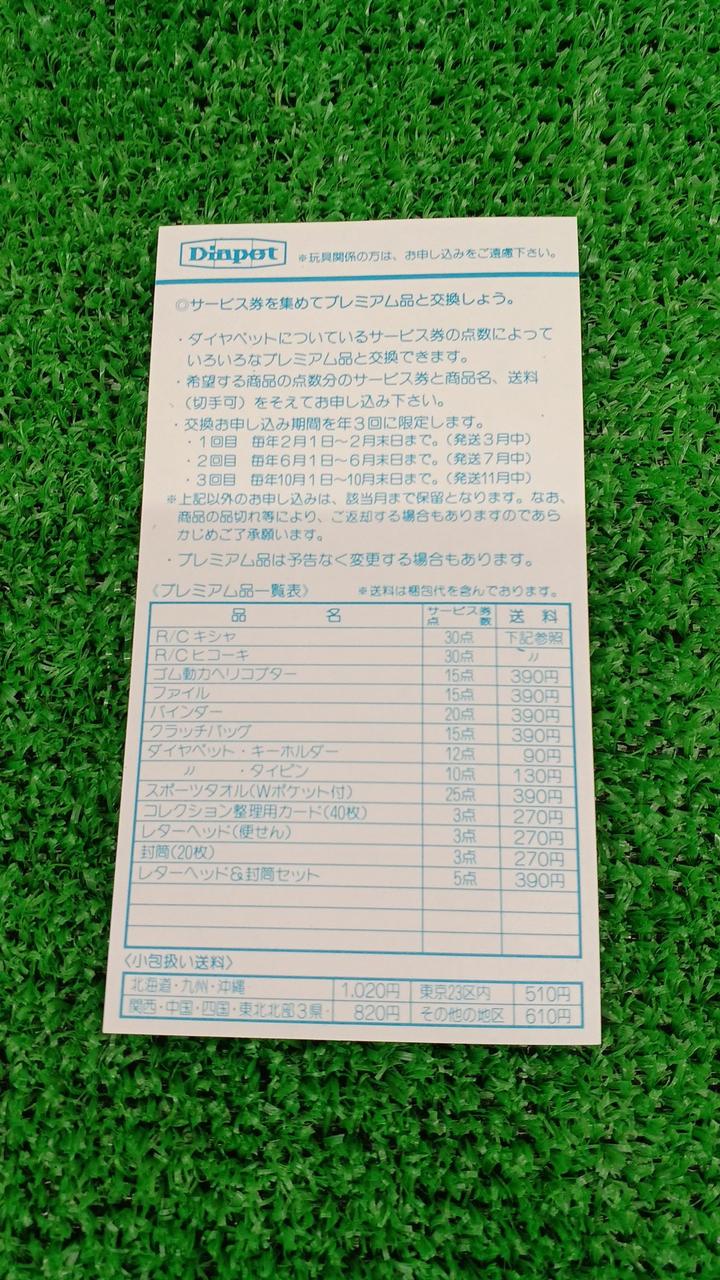 Diapet ※玩具関係の方は、お申し込みをご遠慮下さい。
◎サービス券を集めてプレミアム品と交換しよう。
・ダイヤペットについているサービス券の点数によって
いろいろなプレミアム品と交換できます。
・希望する商品の点数分のサービス券と商品名、送料
(切手可)をそえてお申し込み下さい。
・交換お申し込み期間を年3回に限定します。
・1回目 毎年2月1日〜2月末日まで。(発送3月中)
・2回目 毎年6月1日〜6月末日まで。(発送7月中)
・3回目 毎年10月1日〜10月末日まで。(発送11月中)
※上記以外のお申し込みは、該当月まで保留となります。なお、
商品の品切れ等により、ご返却する場合もありますのであら
かじめご了承願います。
・プレミアム品は予告なく変更する場合もあります。
《プレミアム品一覧表》 ※送料は梱包代を含んでおります。
品 名 サービス券点数 送料
R/Cキシャ 30点 下記参照
R/Cヒコーキ 30点 〃
ゴム動力ヘリコプター 15点 390円
ファイル 15点 390円
バインダー 20点 390円
クラッチバッグ 15点 390円
ダイヤペット・キーホルダー 12点 90円
〃 ・タイピン 10点 130円
スポーツタオル(Wポケット付) 25点 390円
コレクション整理用カード(40枚) 3点 270円
レターヘッド(便せん) 3点 270円
封筒(20枚) 3点 270円
レターヘッド&封筒セット 5点 390円
〈小包扱い送料〉
北海道・九州・沖縄 1,020円 東京23区内 510円
関西・中国・四国・東北北部3県・ 820円 その他の地区 610円